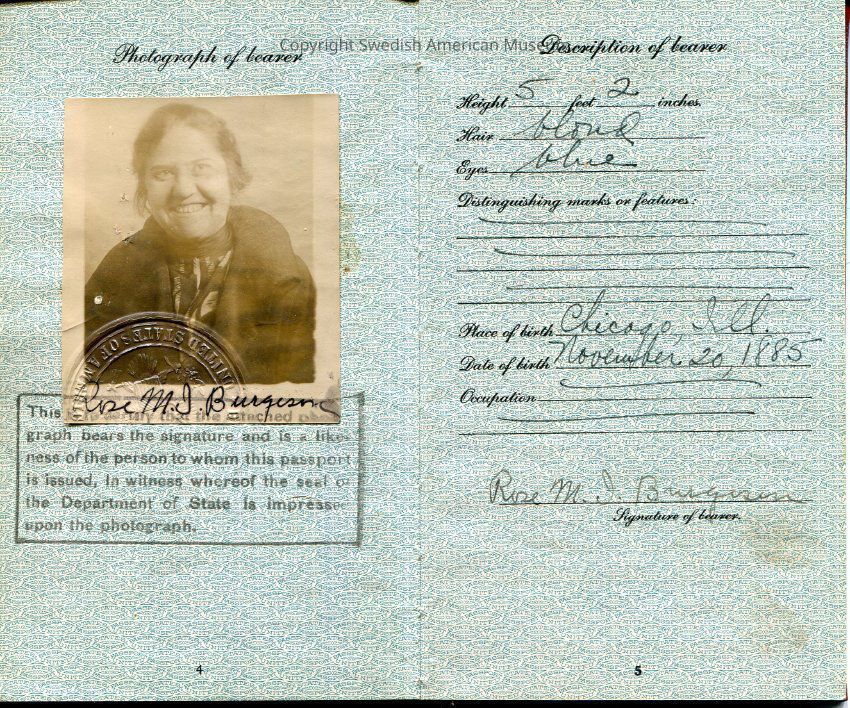 Copyright Swedish American Muse
Photograph of bearer
UNITED STATES OF AMERICA
Rose M. I. Burgeson
This certify that the attached
graph bears the signature and is a like-
ness of the person to whom this passport
is issued, in witness whereof the seal of
the Department of State is impressed
upon the photograph.
4
Description of bearer
Height 5 feet 2 inches.
Hair blond
Eyes blue
Distinguishing marks or features:
Place of birth Chicago, Ill.
Date of birth November 20, 1885
Occupation
Rose M. I. Burgeson
Signature of bearer.
5